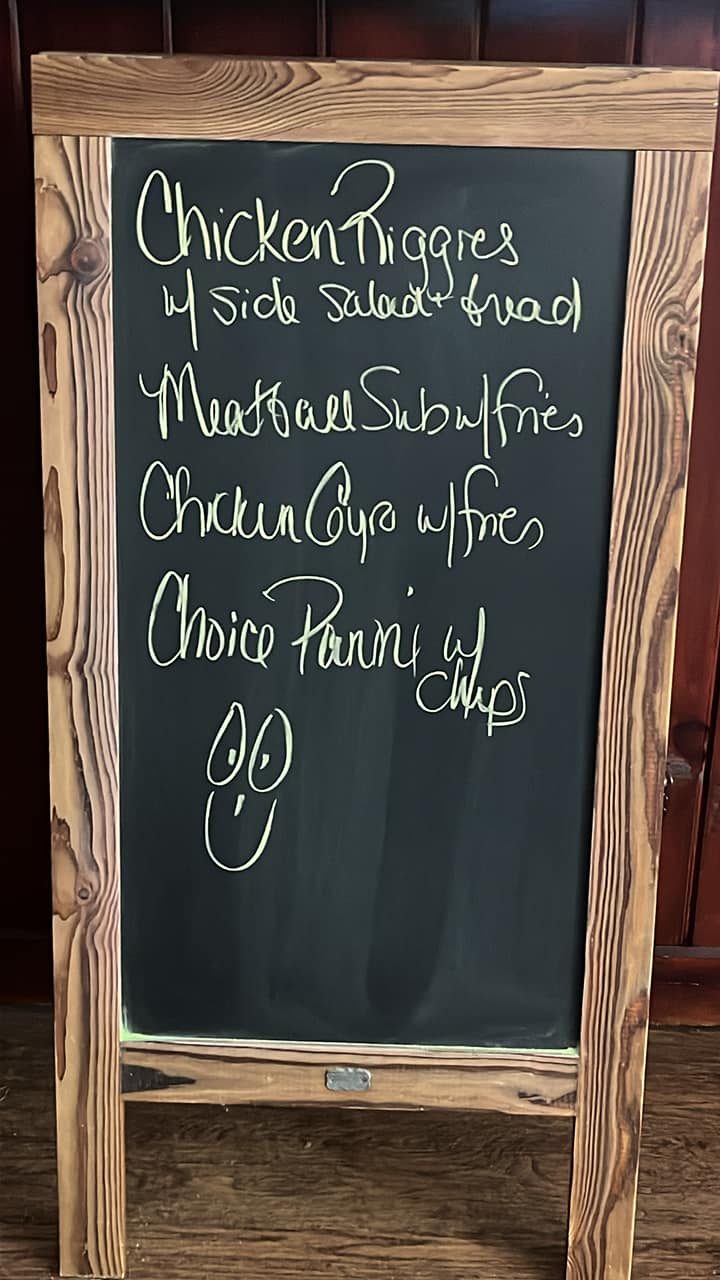 Chicken Riggies
w/ side salad + bread
Meatball Sub w/ fries
Chicken Gyro w/ fries
Choice Panini w/
chips